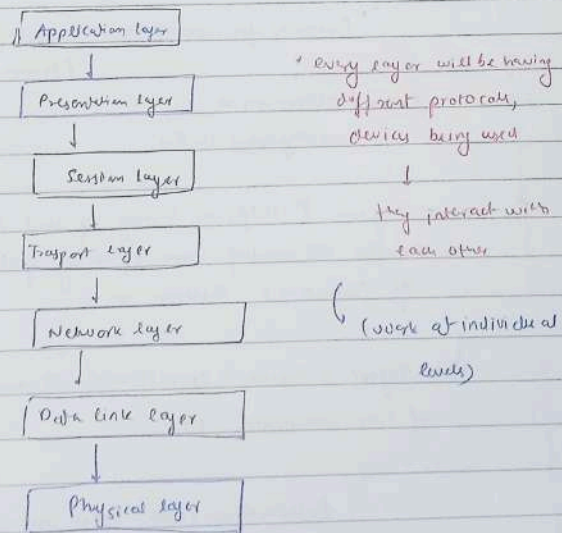 Application layer
Presentation layer
Session layer
Trasport layer
Network layer
Data link layer
Physical layer
* every layer will be having
different protocols,
devices being used
they interact with
each other
(work at individual
levels)